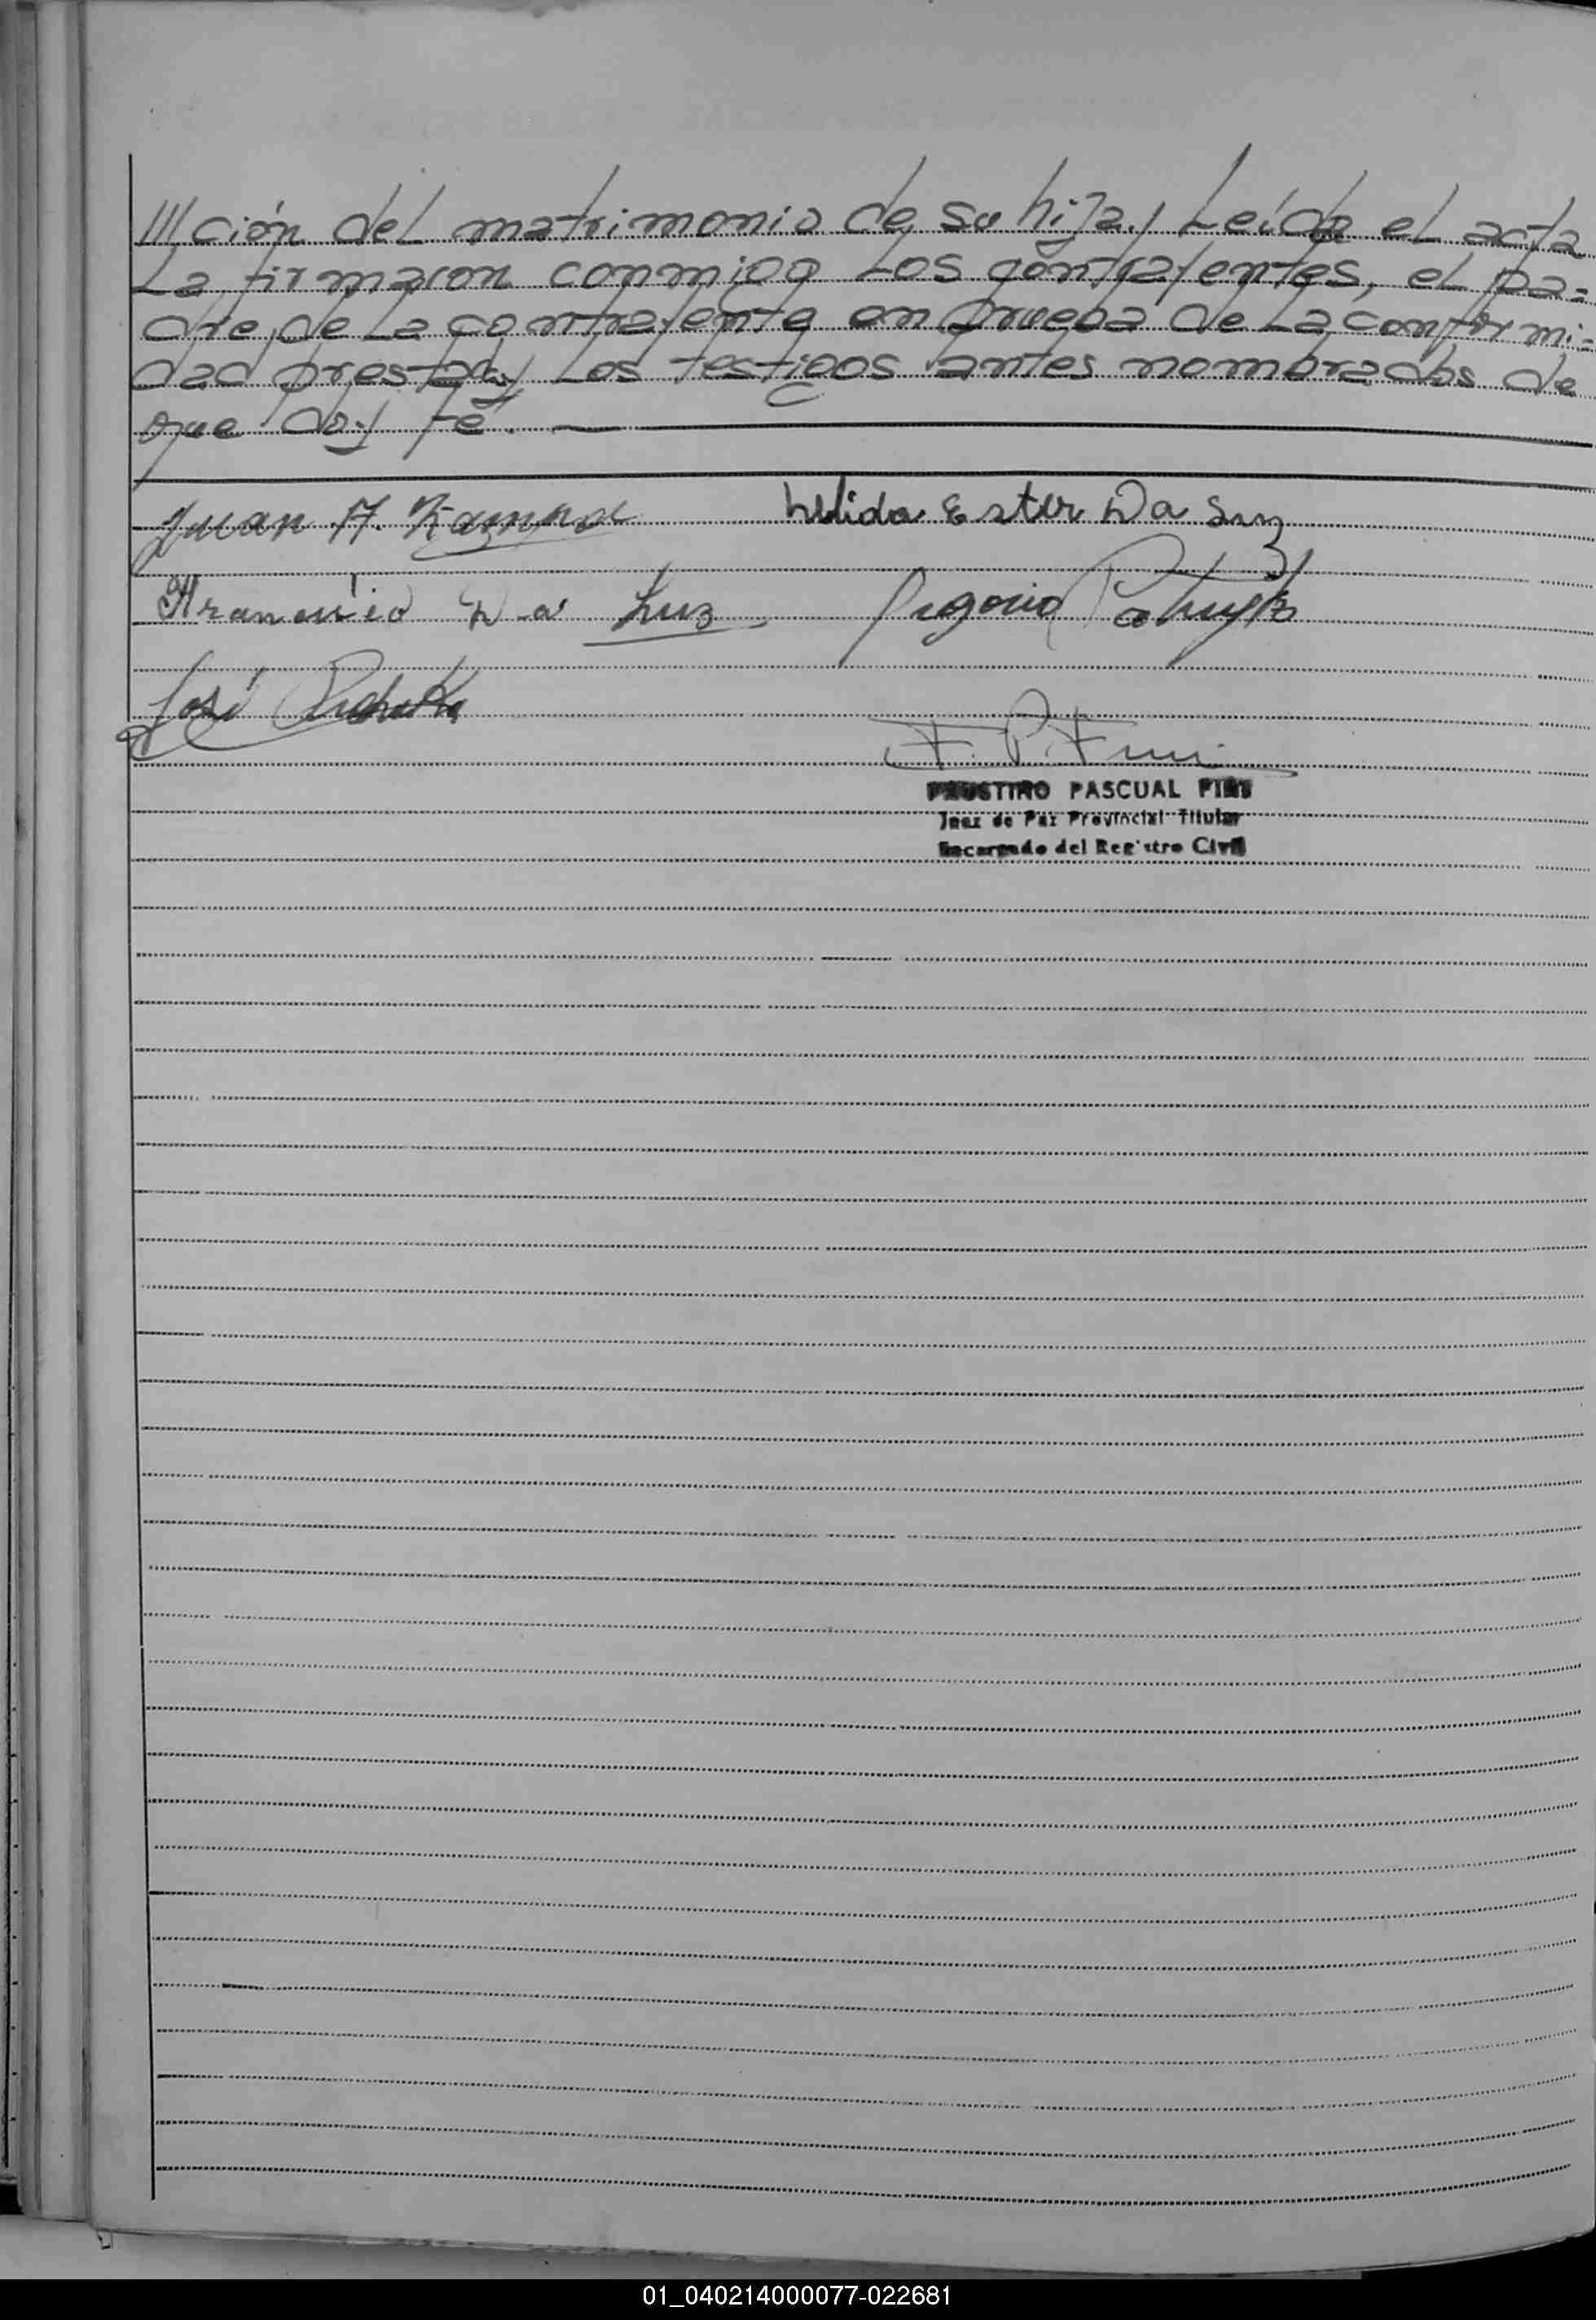 ///ción del matrimonio de su hija.- Leída el acta
La firmaron conmigo Los contrayentes, el pa=
dre de La contrayente en prueba de La conformi=
dad prestada y Los testigos antes nombrados de
que doy fé.
Juan A.
Ester Da Luz
Da Luz
José
F. P.
FAUSTINO PASCUAL PIRIS
Juez de Paz Provincial Titular
Encargado del Registro Civil
01_040214000077-022681